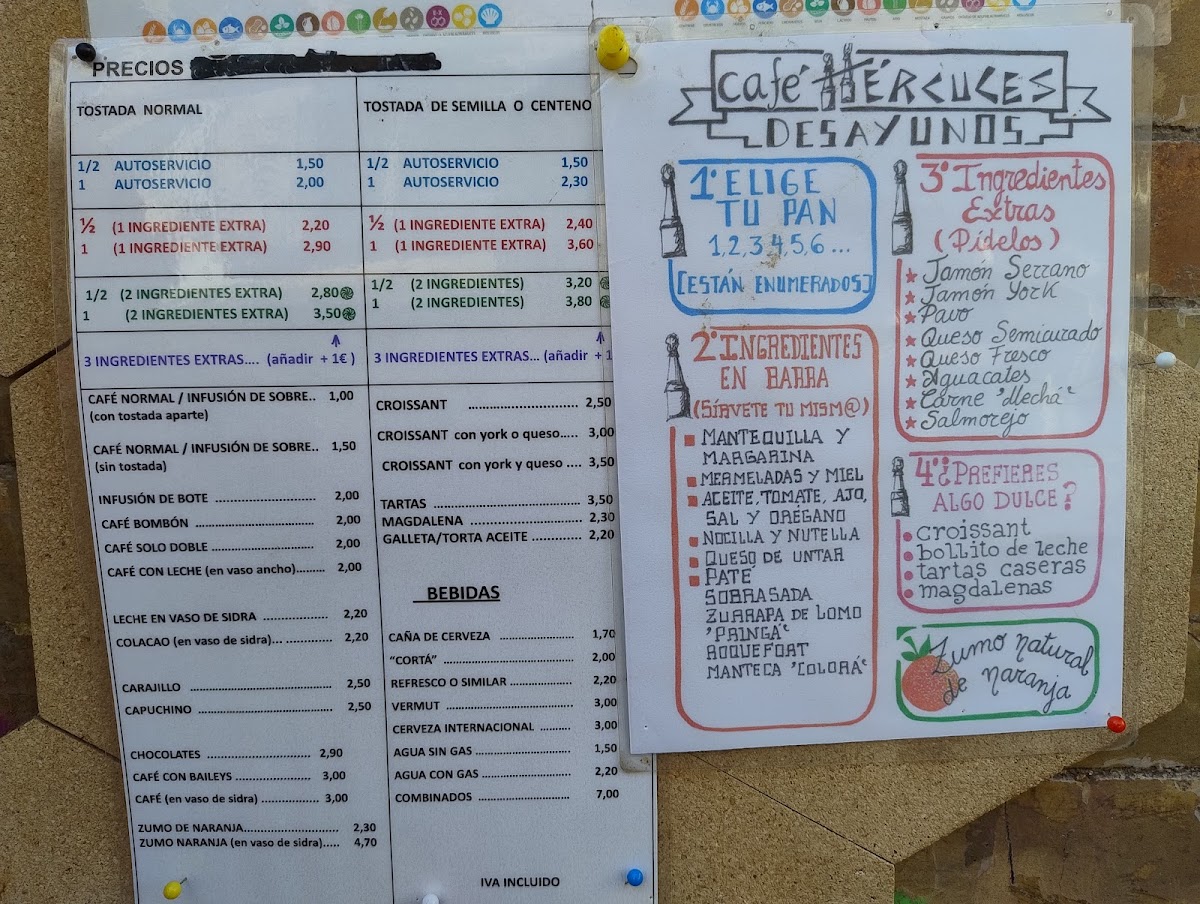 PRECIOS
TOSTADA NORMAL
1/2 AUTOSERVICIO 1,50
1 AUTOSERVICIO 2,00
½ (1 INGREDIENTE EXTRA) 2,20
1 (1 INGREDIENTE EXTRA) 2,90
1/2 (2 INGREDIENTES EXTRA) 2,80
1 (2 INGREDIENTES EXTRA) 3,50
3 INGREDIENTES EXTRAS.... (añadir + 1€ )
CAFÉ NORMAL / INFUSIÓN DE SOBRE.. 1,00
(con tostada aparte)
CAFÉ NORMAL / INFUSIÓN DE SOBRE.. 1,50
(sin tostada)
INFUSIÓN DE BOTE ........................ 2,00
CAFÉ BOMBÓN ............................ 2,00
CAFÉ SOLO DOBLE ........................ 2,00
CAFÉ CON LECHE (en vaso ancho)........ 2,00
LECHE EN VASO DE SIDRA ............... 2,20
COLACAO (en vaso de sidra)... .......... 2,20
CARAJILLO ................................. 2,50
CAPUCHINO ................................ 2,50
CHOCOLATES .............................. 2,90
CAFÉ CON BAILEYS ....................... 3,00
CAFÉ (en vaso de sidra) ................ 3,00
ZUMO DE NARANJA....................... 2,30
ZUMO NARANJA (en vaso de sidra)..... 4,70
TOSTADA DE SEMILLA O CENTENO
1/2 AUTOSERVICIO 1,50
1 AUTOSERVICIO 2,30
½ (1 INGREDIENTE EXTRA) 2,40
1 (1 INGREDIENTE EXTRA) 3,60
1/2 (2 INGREDIENTES) 3,20
1 (2 INGREDIENTES) 3,80
3 INGREDIENTES EXTRAS... (añadir + 1
CROISSANT ........................... 2,50
CROISSANT con york o queso..... 3,00
CROISSANT con york y queso .... 3,50
TARTAS ................................. 3,50
MAGDALENA ........................... 2,30
GALLETA/TORTA ACEITE ............ 2,20
BEBIDAS
CAÑA DE CERVEZA .................. 1,70
“CORTÁ” ............................... 2,00
REFRESCO O SIMILAR ............... 2,20
VERMUT ............................... 3,00
CERVEZA INTERNACIONAL ......... 3,00
AGUA SIN GAS ....................... 1,50
AGUA CON GAS ...................... 2,20
COMBINADOS ........................ 7,00
IVA INCLUIDO
Café HÉRCULES
DESAYUNOS
1º ELIGE
TU PAN
1,2,3,4,5,6...
[ESTÁN ENUMERADOS]
2º INGREDIENTES
EN BARRA
(SÍRVETE TU MISM@)
MANTEQUILLA Y
MARGARINA
MERMELADAS Y MIEL
ACEITE, TOMATE, AJO,
SAL Y ORÉGANO
NOCILLA Y NUTELLA
QUESO DE UNTAR
PATÉ
SOBRASADA
ZURRAPA DE LOMO
"PRINGÁ"
ROQUEFORT
MANTECA "COLORÁ"
3º Ingredientes
Extras
(Pídelos)
Jamón Serrano
Jamón York
Pavo
Queso Semicurado
Queso Fresco
Aguacates
Carne "Mechá"
Salmorejo
4º ¿PREFIERES
ALGO DULCE?
croissant
bollito de leche
tartas caseras
magdalenas
Zumo natural
de naranja